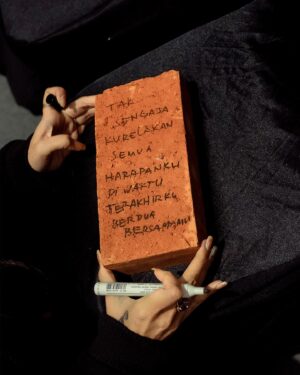 TAK
SENGAJA
KURELAKAN
SEMUA
HARAPANKU
DI WAKTU
TERAKHIRKU
BERDUA
BERSAMAMU